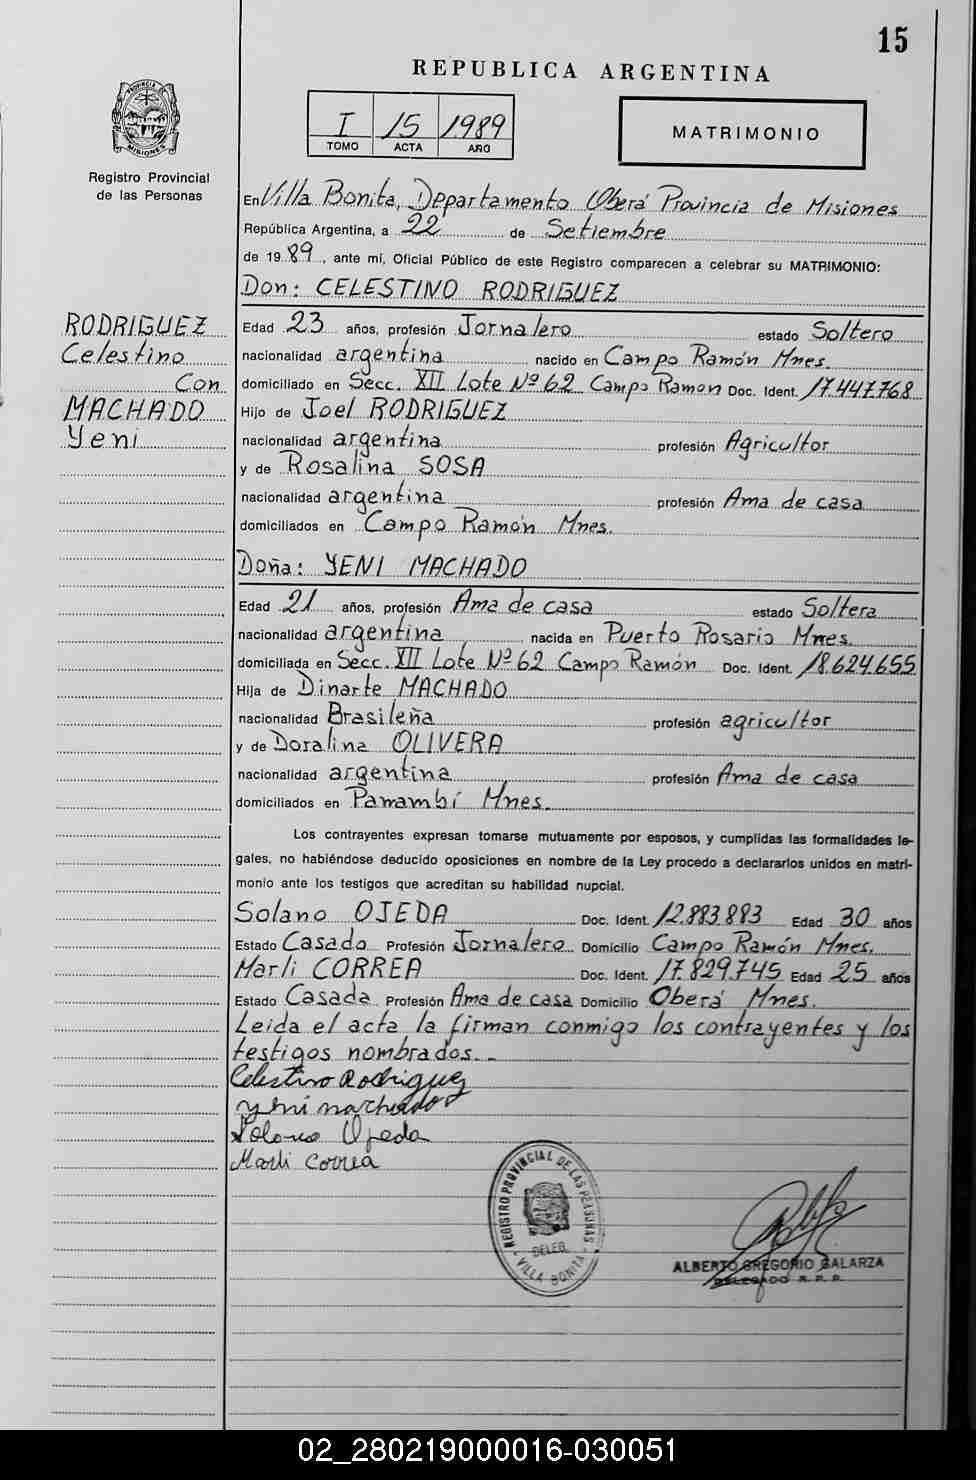 15
REPUBLICA ARGENTINA
I 15 1989
TOMO ACTA AÑO
MATRIMONIO
PROVINCIA DE MISIONES
Registro Provincial
de las Personas
En Villa Bonita, Departamento Oberá Provincia de Misiones
República Argentina, a 22 de Setiembre
de 1989, ante mí, Oficial Público de este Registro comparecen a celebrar su MATRIMONIO:
Don: CELESTINO RODRIGUEZ
RODRIGUEZ
Celestino
Con
MACHADO
Yeni
Edad 23 años, profesión Jornalero estado Soltero
nacionalidad argentina nacido en Campo Ramón Mnes.
domiciliado en Secc. XII Lote Nº 62 Campo Ramon Doc. Ident. 17.447.768
Hijo de Joel RODRIGUEZ
nacionalidad argentina profesión Agricultor
y de Rosalina SOSA
nacionalidad argentina profesión Ama de casa
domiciliados en Campo Ramón Mnes.
Doña: YENI MACHADO
Edad 21 años, profesión Ama de casa estado Soltera
nacionalidad argentina nacida en Puerto Rosario Mnes.
domiciliada en Secc. XII Lote Nº 62 Campo Ramón Doc. Ident. 18.624.655
Hija de Dinarte MACHADO
nacionalidad Brasileña profesión agricultor
y de Doralina OLIVERA
nacionalidad argentina profesión Ama de casa
domiciliados en Panambí Mnes.
Los contrayentes expresan tomarse mutuamente por esposos, y cumplidas las formalidades le-
gales, no habiéndose deducido oposiciones en nombre de la Ley procedo a declararlos unidos en matri-
monio ante los testigos que acreditan su habilidad nupcial.
Solano OJEDA Doc. Ident. 12.883.883 Edad 30 años
Estado Casado Profesión Jornalero Domicilio Campo Ramón Mnes.
Marli CORREA Doc. Ident. 17.829.745 Edad 25 años
Estado Casada Profesión Ama de casa Domicilio Oberá Mnes.
Leida el acta la firman conmigo los contrayentes y los
testigos nombrados.-
Celestino Rodriguez
Yeni machado
Solano Ojeda
Marli Correa
REGISTRO PROVINCIAL DE LAS PERSONAS
DELEG.
VILLA BONITA
ALBERTO GREGORIO GALARZA
DELEGADO R. P. P.
02_280219000016-030051